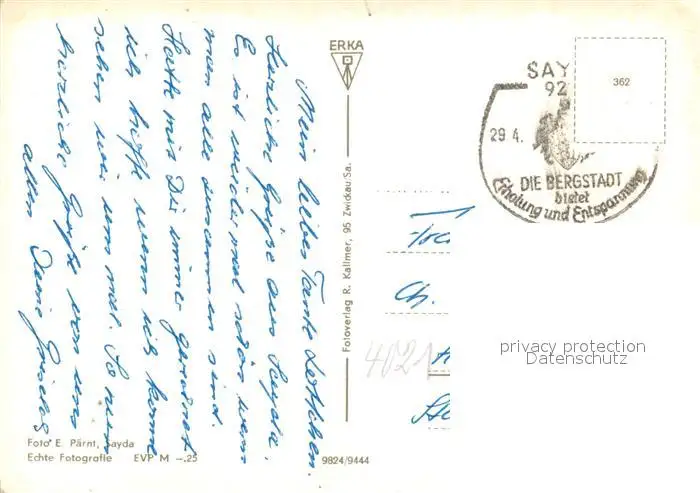 Mein liebes Tante Lottchen.
Herzliche Grüße aus Sayda.
Es ist wieder mal schön wenn
man alle zusammen sind.
Hatte mit Dir immer gerechnet
ich hoffe wenn ich komme
sehen wir uns mal. So nun
herzliche Grüße von uns
allen Deine
ERKA
Fotoverlag R. Kallmer, 95 Zwickau/Sa.
SAY
92
29.4.
DIE BERGSTADT
bietet
Erholung und Entspannung
362
Ch.
4021
privacy protection
Datenschutz
Foto E. Pärnt, Sayda
Echte Fotografie EVP M -.25
9824/9444